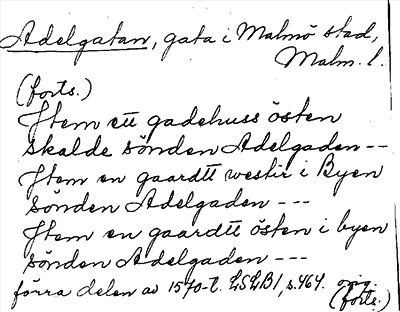 Adelgatan, gata i Malmö stad,
Malm. l.
(forts.)
Jtem ett gadehuss östen
skalde sönden Adelgaden --
Jtem en gaardtt westir i Byen
sönden Adelgaden ---
Jtem en gaardtt östen i byen
sönden Adelgaden ---
förra delen av 1570-t. LSLB1, s. 464.
(forts.)